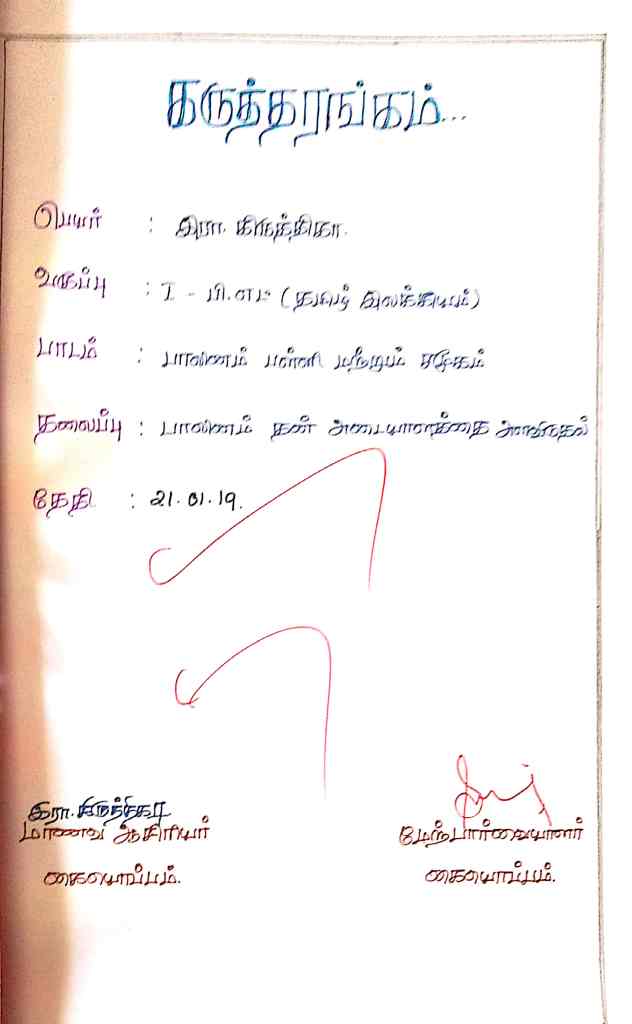 கருத்தரங்கம்...
பெயர் : இரா. கிருத்திகா.
வகுப்பு : I - பி.எட் (தமிழ் இலக்கியம்)
பாடம் : பாலினம் பள்ளி மற்றும் சமூகம்
தலைப்பு : பாலினம் தன் அடையாளத்தை அளவிடுதல்
தேதி : 21.01.19.
இரா. கிருத்திகா
மாணவ ஆசிரியர் மேற்பார்வையாளர்
கையொப்பம். கையொப்பம்.